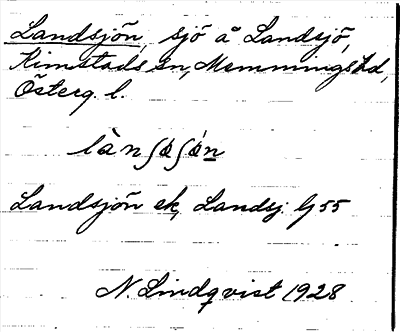 Landsjön, sjö å Landsjö,
Kimstads sn, Memmings hd,
Österg. l.
Landsjön ek, Landsj. G 55
N. Lindqvist 1928